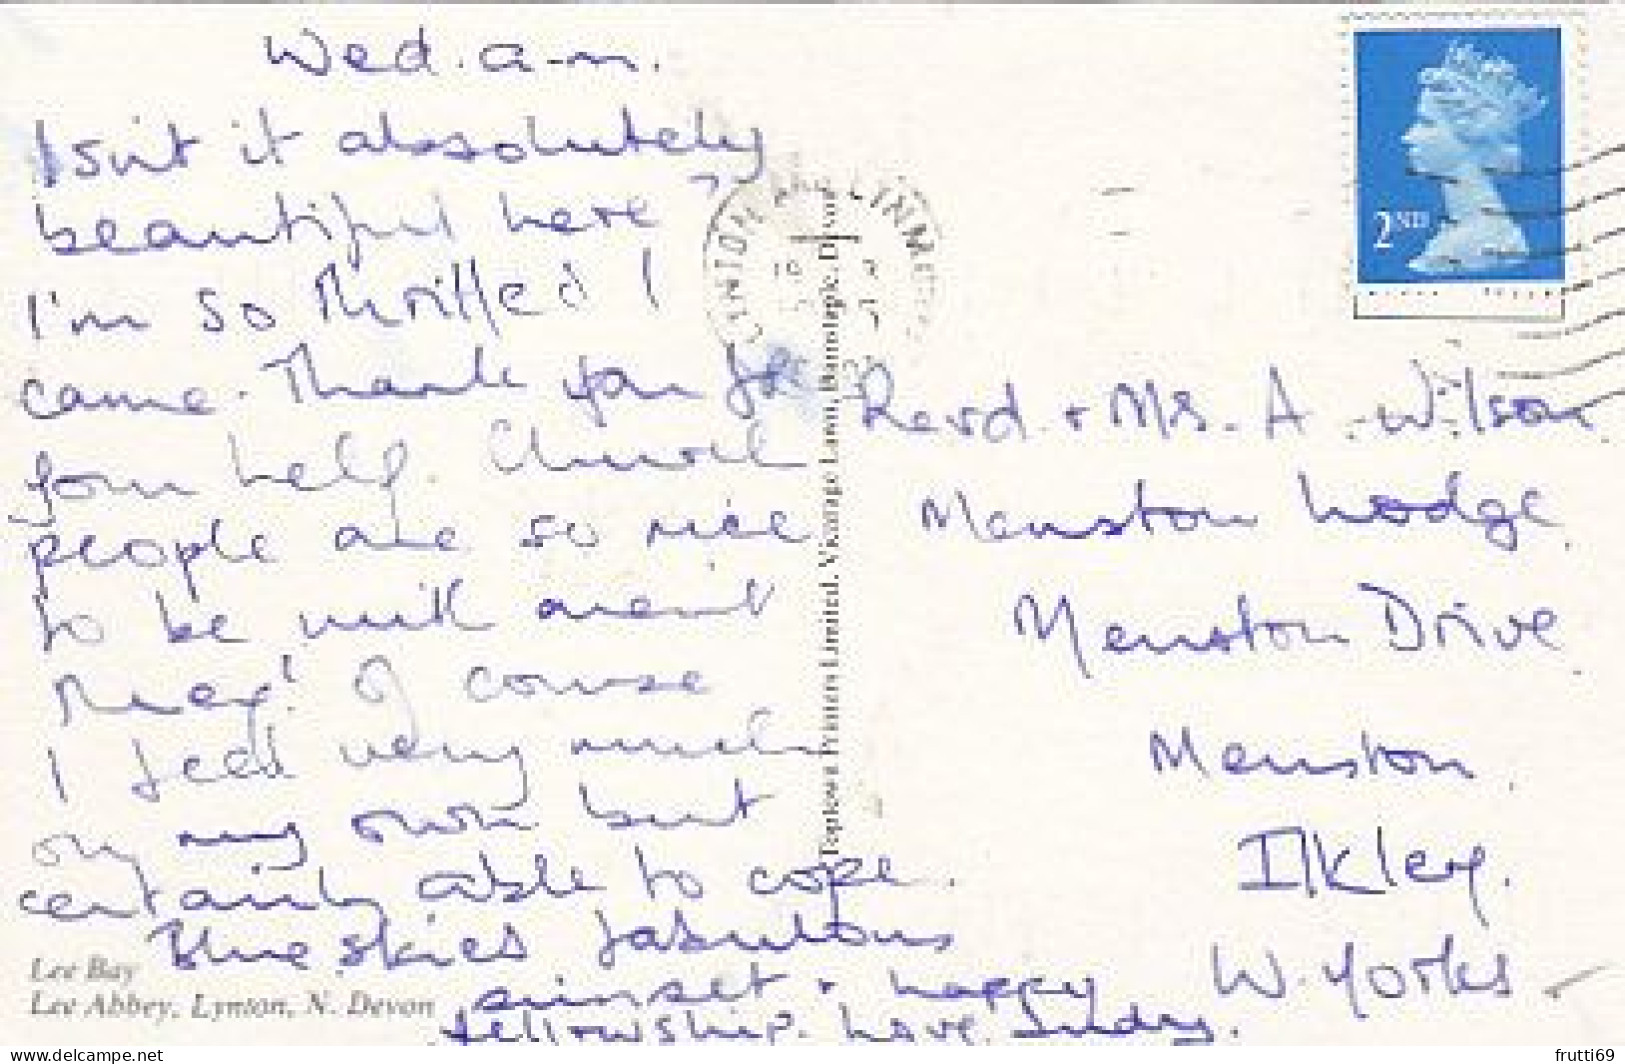 Wed. a-m.
Isn't it absolutely
beautiful here,
I'm so thrilled I
came. Thank you for
your help. Church
people are so nice
to be with aren't
they! Of course
I feel very much
on my own but
certainly able to cope.
Blue skies fabulous
sunset + happy
fellowship. Love
Lee Bay
Lee Abbey, Lynton, N. Devon
Peplow Printers Limited, Vicarage Lawn, Barnstaple, Devon
LYNTON AND LYNMOUTH
2ND
Revd. + Mrs. A. Wilson
Menston Lodge,
Menston Drive,
Menston,
Ilkley,
W. Yorks
https://www.delcampe.net
frutti69